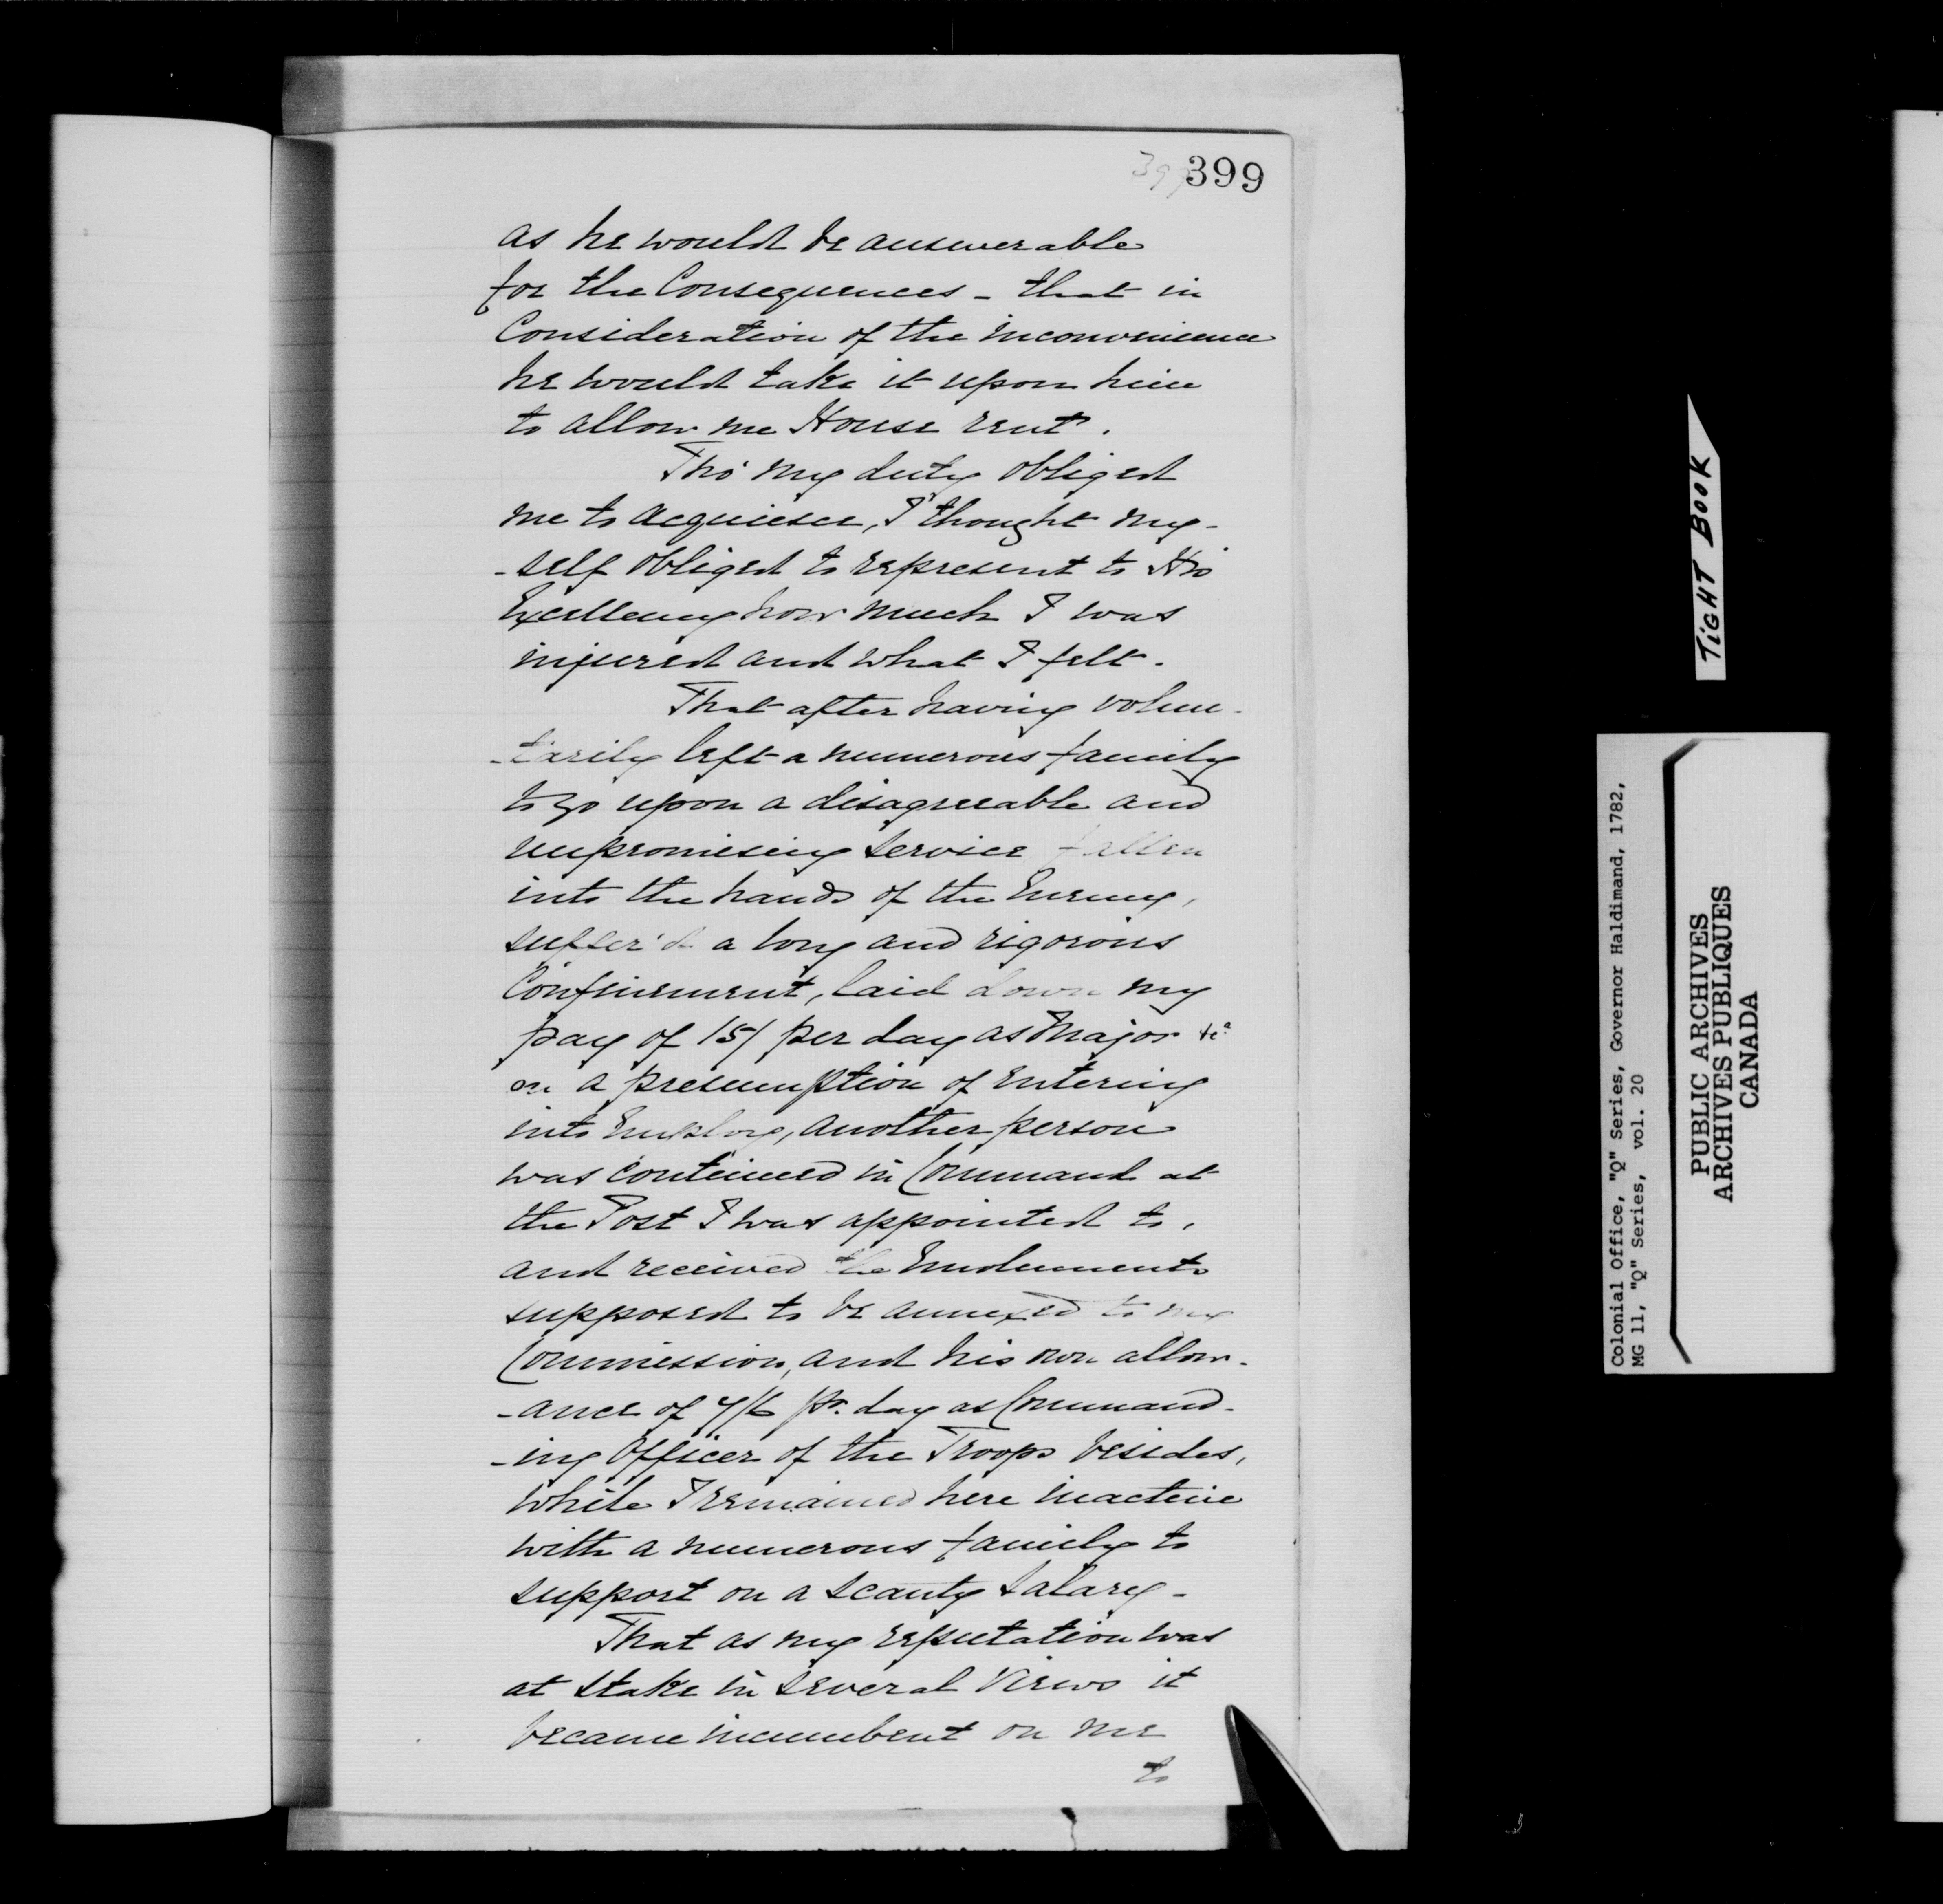 399
399
as he would be answerable
for the Consequences - that in
Consideration of the inconvenience
he would take it upon him
to allow me House rent.
Tho' my duty obliged
me to acquiesce, I thought my-
-self obliged to represent to His
Excellency how much I was
injured and what I felt.
That after having volun-
-tarily left a numerous family
to go upon a disagreeable and
unpromising service fallen
into the hands of the Enemy,
suffer'd a long and rigorous
Confinement, laid down my
pay of 15/ per day as Major &ca
on a presumption of entering
into Employ, another person
was continued in Command at
the Post I was appointed to,
and received the Emoluments
supposed to be annexed to my
Commission, and his own allow-
-ance of 4/6 pr. day as Command-
-ing Officer of the Troops besides,
while I remained here inactive
with a numerous family to
support on a scanty Salary -
That as my reputation was
at stake in several Views it
became incumbent on me
to
TIGHT BOOK
Colonial Office, "Q" Series, Governor Haldimand, 1782,
MG 11, "Q" Series, vol. 20
PUBLIC ARCHIVES
ARCHIVES PUBLIQUES
CANADA